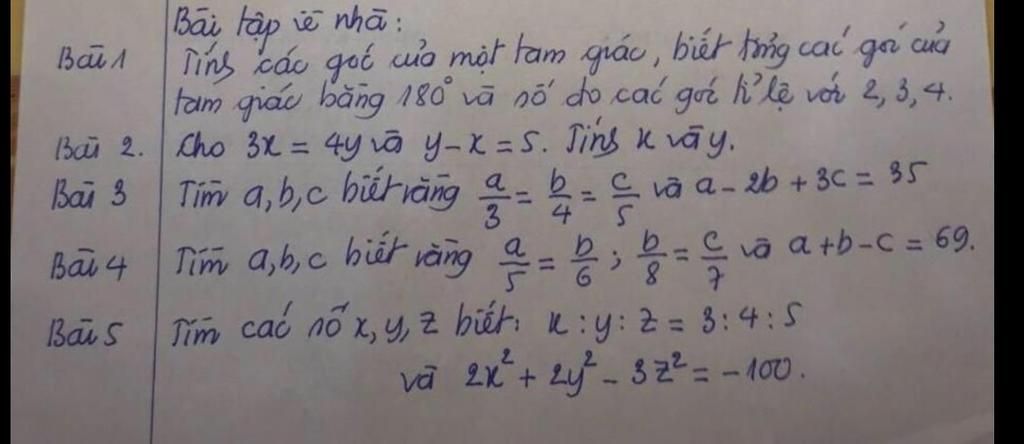 Bài tập về nhà:
Bài 1 Tính các góc của một tam giác, biết tổng các góc của
tam giác bằng 180° và số đo các góc tỉ lệ với 2, 3, 4.
Bài 2. Cho 3x = 4y và y - x = 5. Tính x và y.
Bài 3 Tìm a, b, c biết rằng a/3 = b/4 = c/5 và a - 2b + 3c = 35
Bài 4 Tìm a, b, c biết rằng a/5 = b/6 ; b/8 = c/7 và a + b - c = 69.
Bài 5 Tìm các số x, y, z biết: x : y : z = 3 : 4 : 5
và 2x² + 2y² - 3z² = -100.